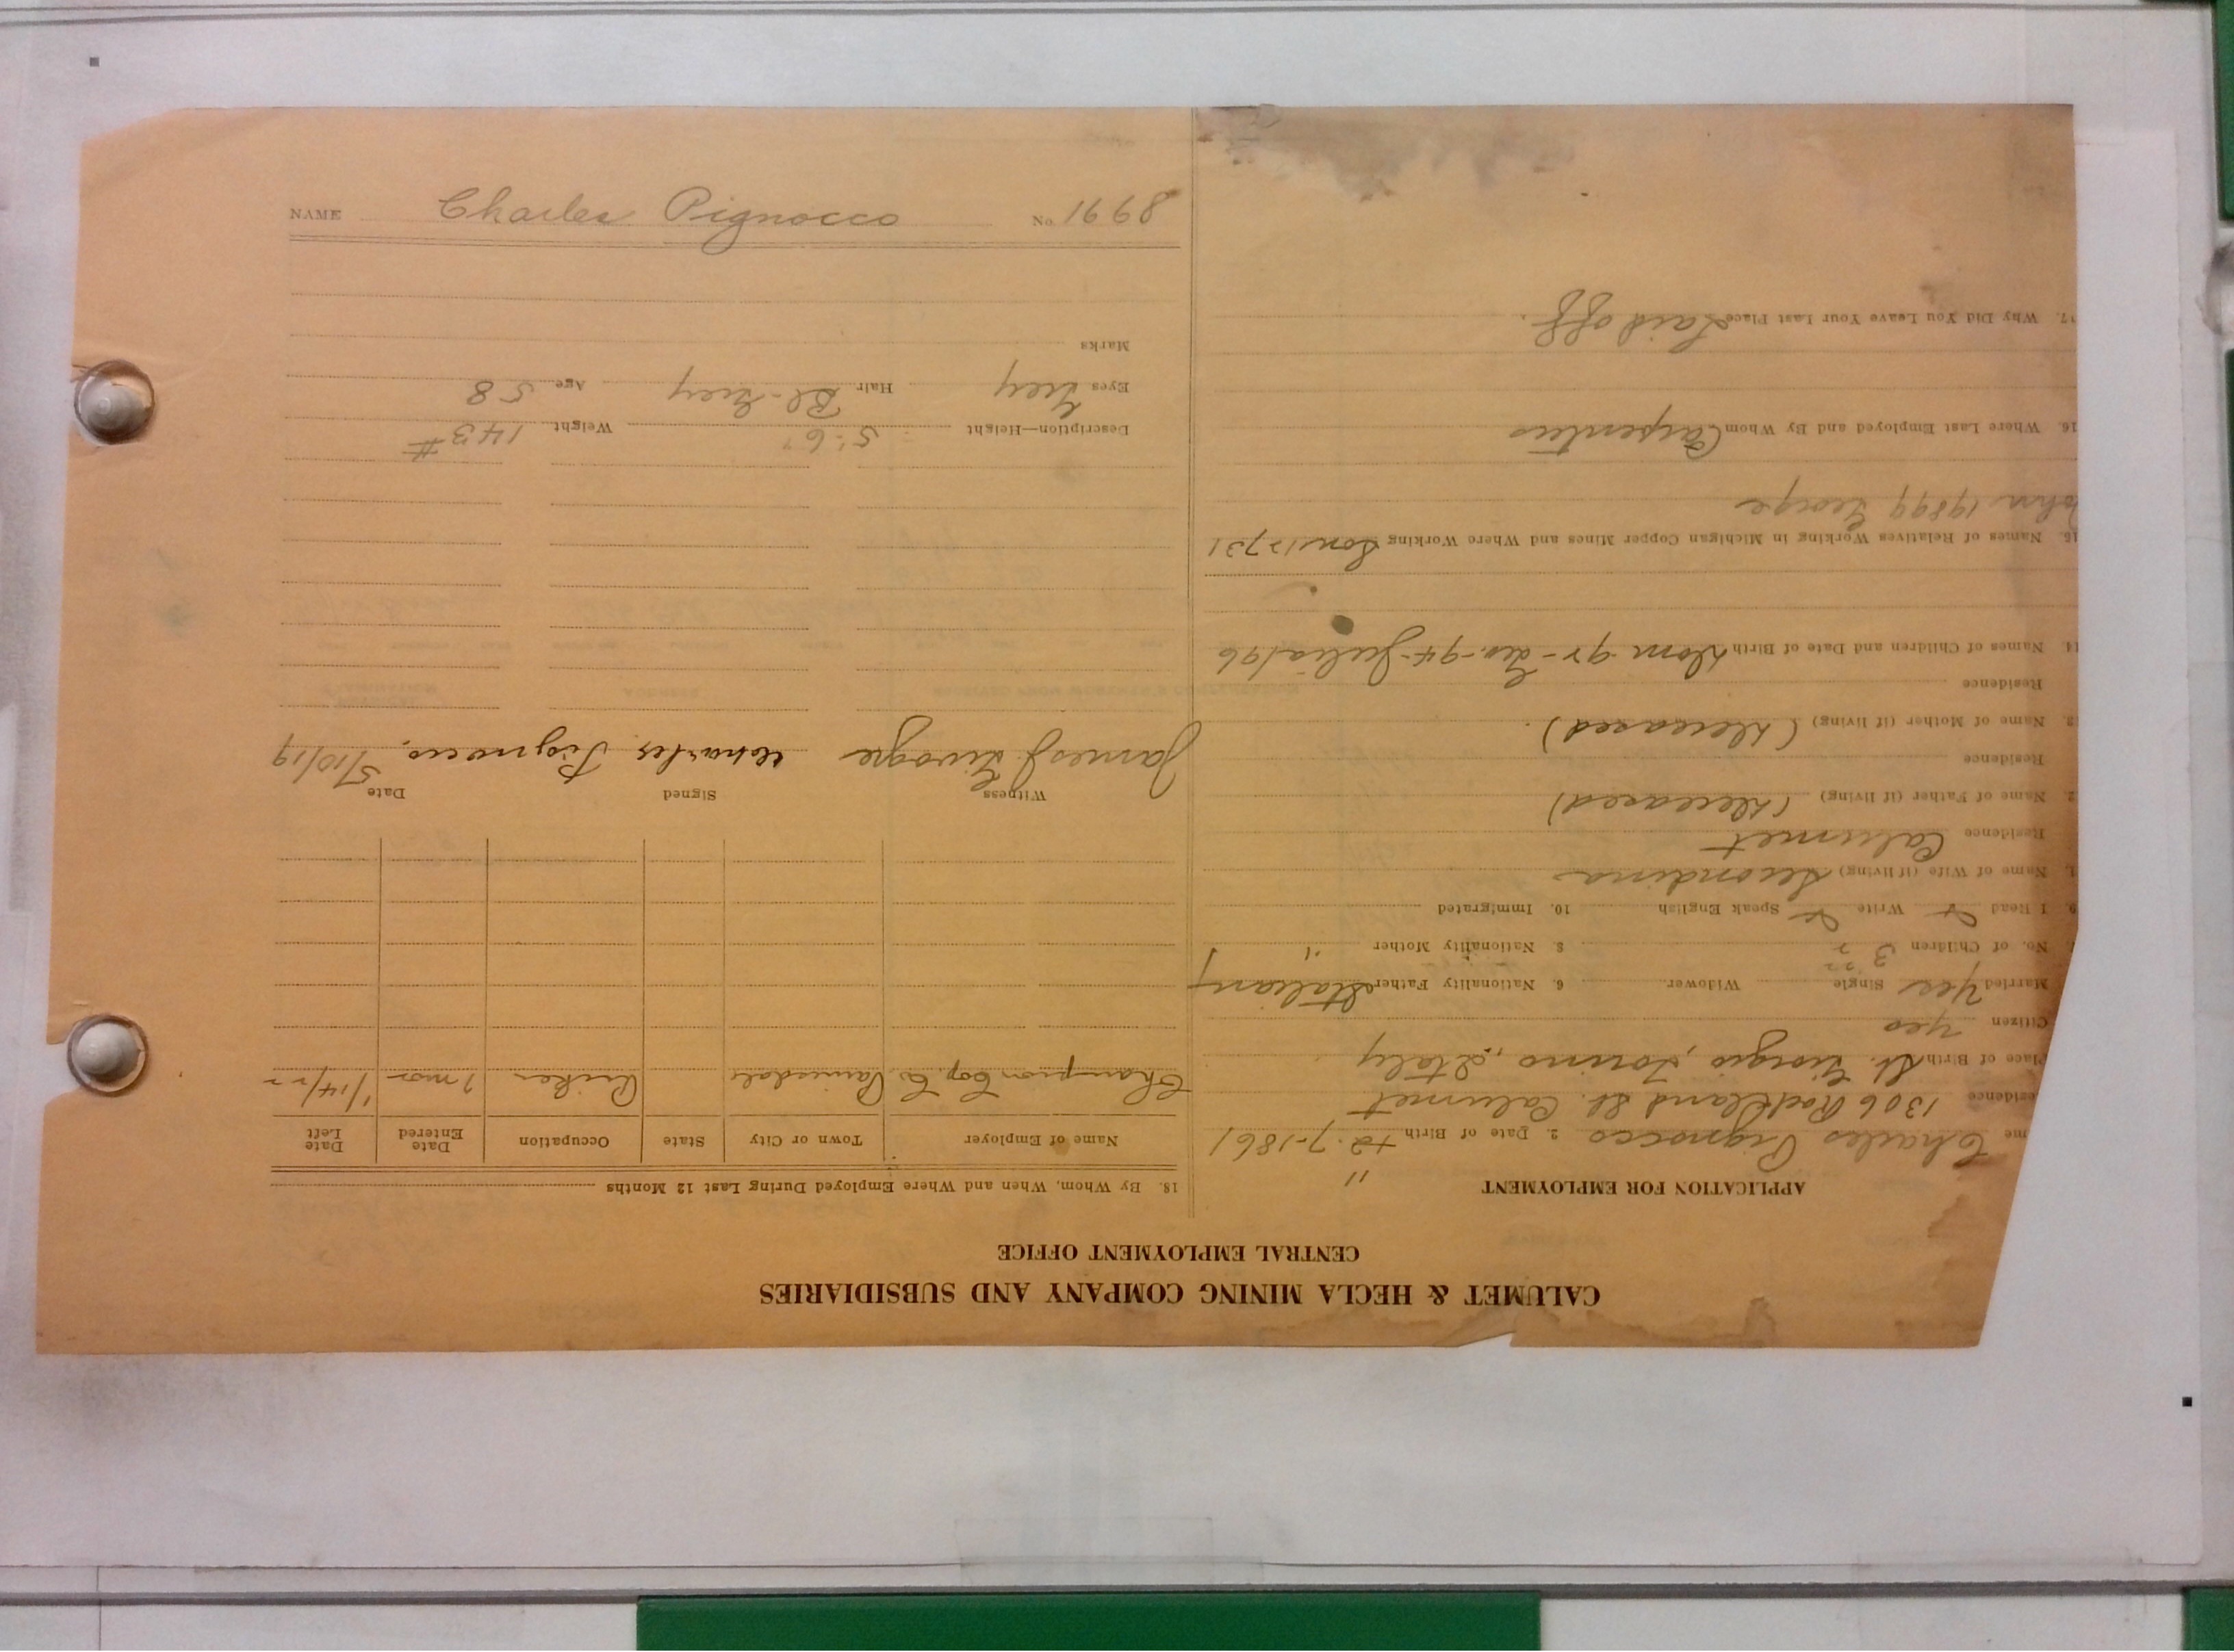 CALUMET & HECLA MINING COMPANY AND SUBSIDIARIES
CENTRAL EMPLOYMENT OFFICE
APPLICATION FOR EMPLOYMENT
me Charles Pignocco 2. Date of Birth 7-1861
esidence 1306 Rockland St. Calumet
Place of Birth St. Giorgio, Torino, Italy
Citizen Yes
Married Yes Single Widower 6. Nationality Father Italian
No. of Children 3 8. Nationality Mother "
9. I Read Write Speak English 10. Immigrated
1. Name of Wife (if living) Secondina
Residence Calumet
2. Name of Father (if living) (Deceased)
Residence
3. Name of Mother (if living) (Deceased).
Residence
14. Names of Children and Date of Birth Dom 92 - Geo. - 94 - Julia/96
15. Names of Relatives Working in Michigan Copper Mines and Where Working Son 12731
John 19899 George
16. Where Last Employed and By Whom Carpenters
17. Why Did You Leave Your Last Place Laid off.
18. By Whom, When and Where Employed During Last 12 Months
Name of Employer Town or City State Occupation Date Entered Date Left
Champion Cop. Co. Painesdale Picker 2 mos 1/14/22
Witness Signed Date
James J. Charles Pignocco, 5/10/19
Description—Height 5'-6" Weight 143#
Eyes Grey Hair Bl-Grey Age 58
Marks
NAME Charles Pignocco No. 1668